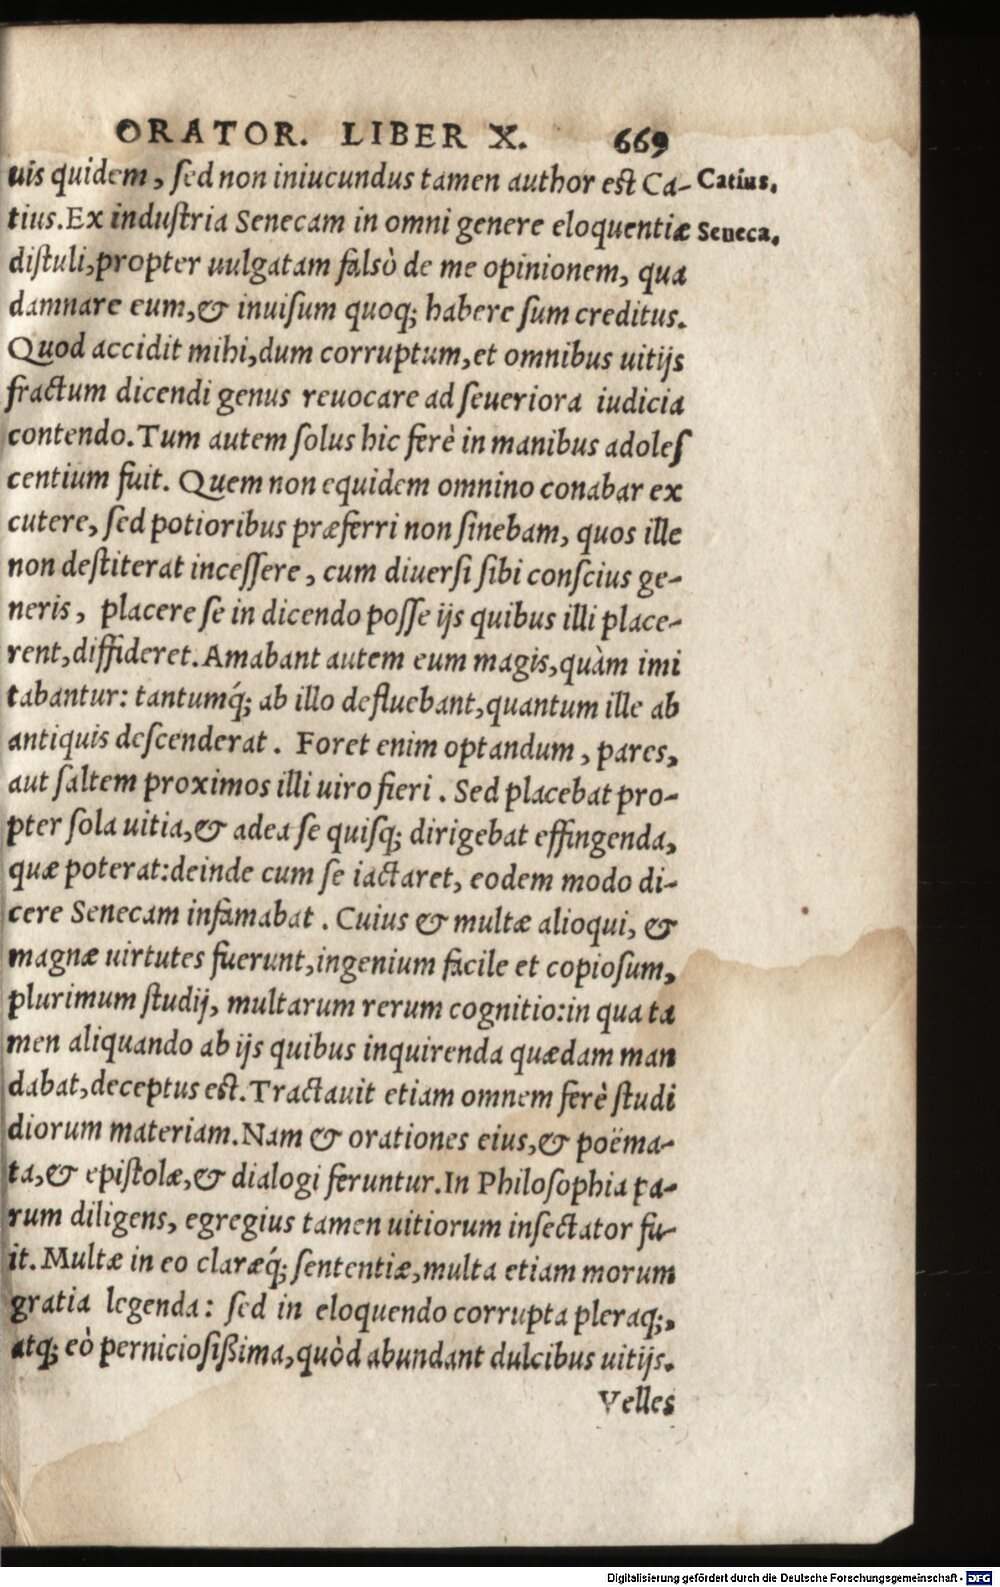 ORATOR. LIBER X. 669
uis quidem, ſed non iniucundus tamen author eſt Ca- Catius.
tius. Ex induſtria Senecam in omni genere eloquentiæ Seneca.
diſtuli, propter uulgatam falsò de me opinionem, qua
damnare eum, & inuiſum quoq; habere ſum creditus.
Quod accidit mihi, dum corruptum, et omnibus uitijs
fractum dicendi genus reuocare ad ſeueriora iudicia
contendo. Tum autem ſolus hic ferè in manibus adoleſ
centium fuit. Quem non equidem omnino conabar ex
cutere, ſed potioribus præferri non ſinebam, quos ille
non deſtiterat inceſſere, cum diuerſi ſibi conſcius ge-
neris, placere ſe in dicendo poſſe ijs quibus illi place-
rent, diffideret. Amabant autem eum magis, quàm imi
tabantur: tantumq́; ab illo defluebant, quantum ille ab
antiquis deſcenderat. Foret enim optandum, pares,
aut ſaltem proximos illi uiro fieri. Sed placebat pro-
pter ſola uitia, & ad ea ſe quiſq; dirigebat effingenda,
quæ poterat: deinde cum ſe iactaret, eodem modo di-
cere Senecam infamabat. Cuius & multæ alioqui, &
magnæ uirtutes fuerunt, ingenium facile et copioſum,
plurimum ſtudij, multarum rerum cognitio: in qua ta
men aliquando ab ijs quibus inquirenda quædam man
dabat, deceptus eſt. Tractauit etiam omnem ferè ſtudi
diorum materiam. Nam & orationes eius, & poëma-
ta, & epiſtolæ, & dialogi feruntur. In Philoſophia pa-
rum diligens, egregius tamen uitiorum inſectator fu-
it. Multæ in eo claræq́; ſententiæ, multa etiam morum
gratia legenda: ſed in eloquendo corrupta pleraq;,
atq; eò pernicioſißima, quòd abundant dulcibus uitijs.
Velles
Digitalisierung gefördert durch die Deutsche Forschungsgemeinschaft - DFG